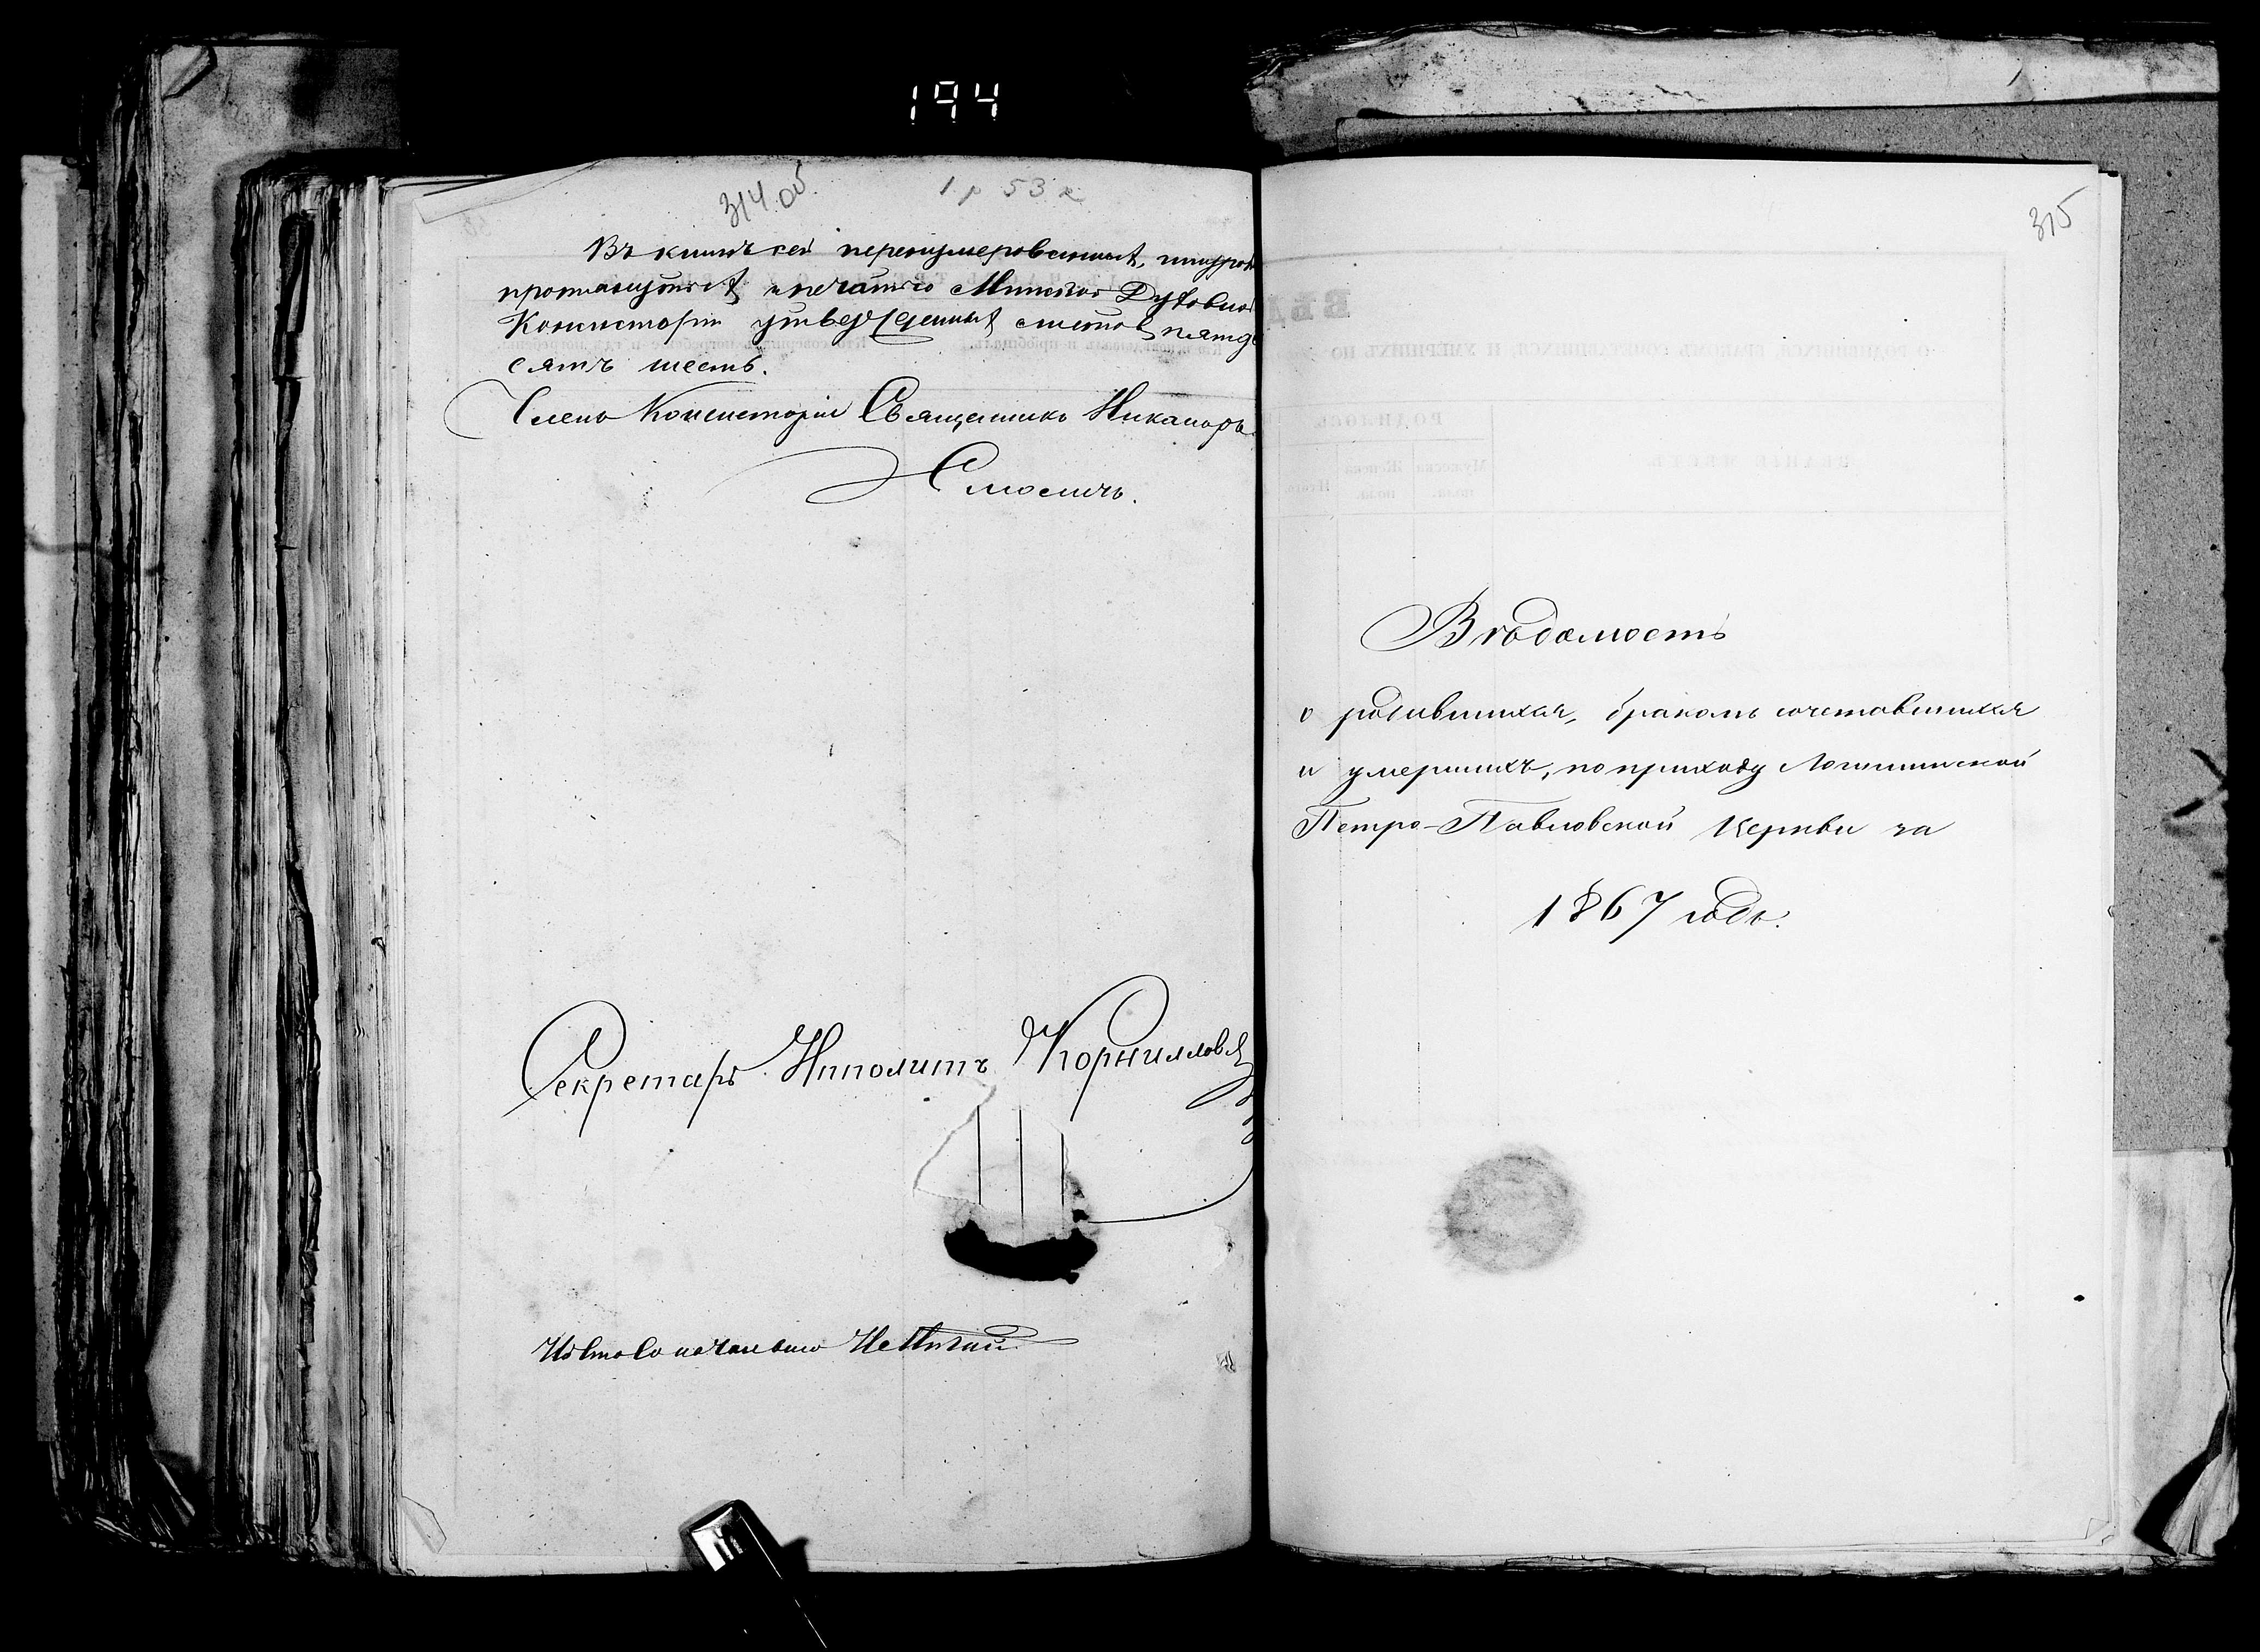 194
314 об.
1 р 53 к
Въ книгѣ сей перенумерованныхъ, шнуром
протянутыхъ и печатью Минской Духовной
Консисторіи утвержденныхъ листовъ пятьде
сятъ шесть.
Членъ Консисторіи Священникъ Никаноръ
Смоличъ.
Секретарь Ипполитъ Корниллов
315
Вѣдомость
о родившихся, бракомъ сочетавшихся
и умершихъ, по приходу Логишинской
Петро-Павловской Церкви за
1867 годъ.